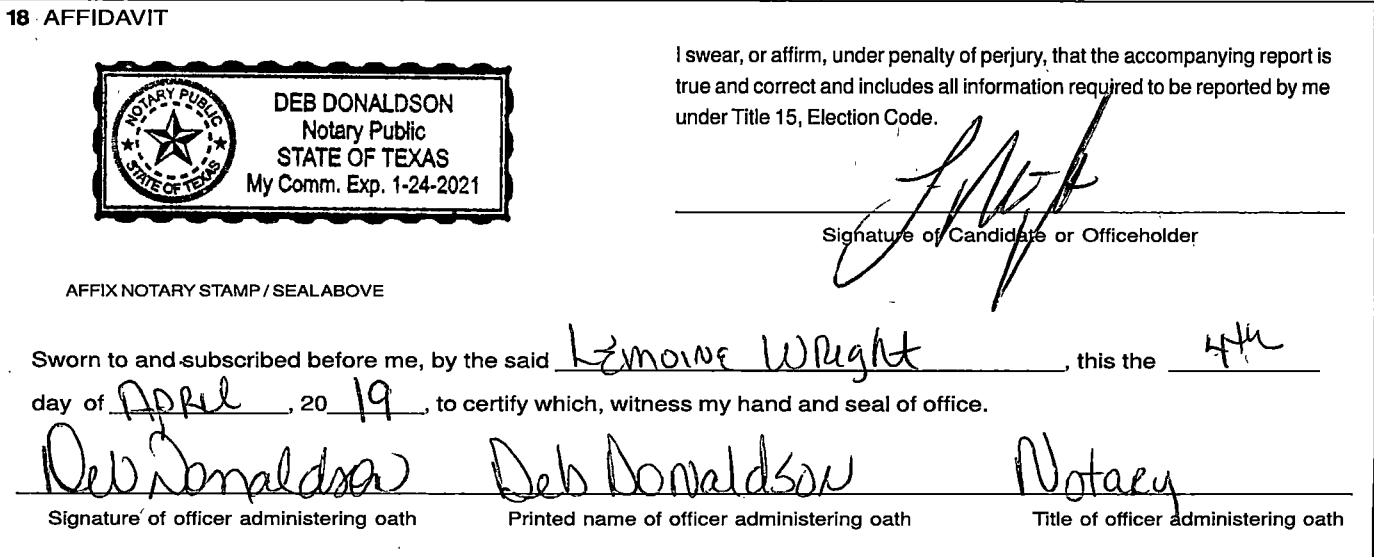 18 AFFIDAVIT
NOTARY PUBLIC
STATE OF TEXAS
DEB DONALDSON
Notary Public
STATE OF TEXAS
My Comm. Exp. 1-24-2021
I swear, or affirm, under penalty of perjury, that the accompanying report is
true and correct and includes all information required to be reported by me
under Title 15, Election Code.
Signature of Candidate or Officeholder
AFFIX NOTARY STAMP / SEALABOVE
Sworn to and subscribed before me, by the said Lemoine Wright, this the 4th
day of April, 20 19, to certify which, witness my hand and seal of office.
Deb Donaldson Deb Donaldson Notary
Signature of officer administering oath Printed name of officer administering oath Title of officer administering oath